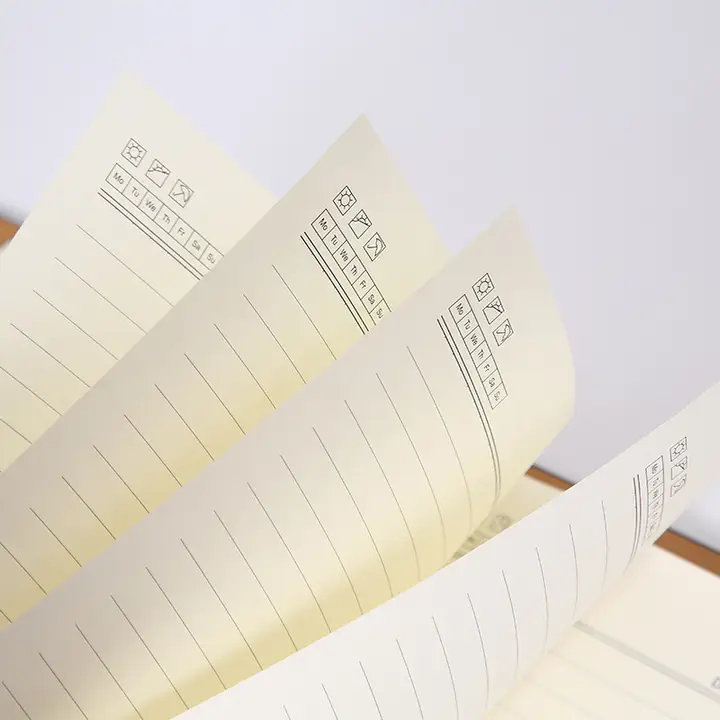 Mo Tu We Th Fr Sa Su
Mo Tu We Th Fr Sa Su
Mo Tu We Th Fr Sa Su
Mo Tu We Th